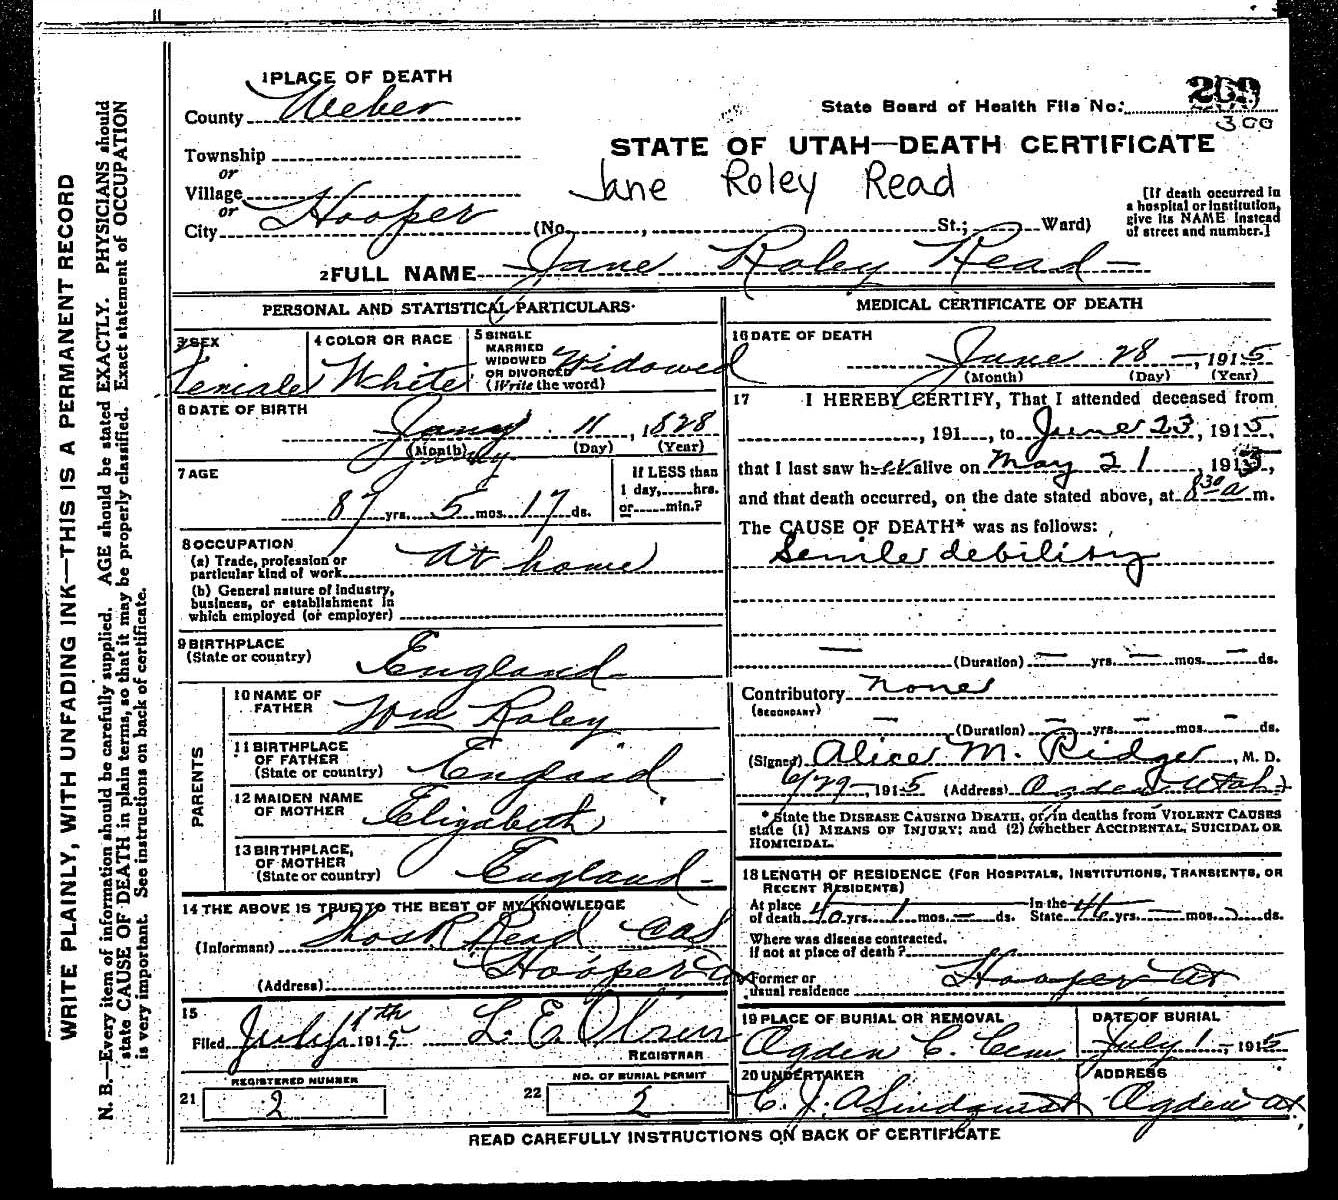 1 PLACE OF DEATH
County Weber
State Board of Health File No. 269
300
Township
or
STATE OF UTAH—DEATH CERTIFICATE
Village
or
Jane Roley Read
City Hooper (No. , St.; Ward)
[If death occurred in
a hospital or institution,
give its NAME instead
of street and number.]
2 FULL NAME Jane Roley Read
PERSONAL AND STATISTICAL PARTICULARS
3 SEX
Female
4 COLOR OR RACE
White
5 SINGLE
MARRIED
WIDOWED
OR DIVORCED
(Write the word)
Widowed
6 DATE OF BIRTH
Jany 11, 1828
(Month) (Day) (Year)
7 AGE
87 yrs. 5 mos. 17 ds.
If LESS than
1 day, hrs.
or min.?
8 OCCUPATION
(a) Trade, profession or
particular kind of work At home
(b) General nature of industry,
business, or establishment in
which employed (or employer)
9 BIRTHPLACE
(State or country) England
PARENTS
10 NAME OF
FATHER Wm Roley
11 BIRTHPLACE
OF FATHER
(State or country) England
12 MAIDEN NAME
OF MOTHER Elizabeth
13 BIRTHPLACE,
OF MOTHER
(State or country) England
14 THE ABOVE IS TRUE TO THE BEST OF MY KNOWLEDGE
(Informant) Thos R Read
(Address) Hooper Ut
15
Filed July 1th 1915 L. E.
REGISTRAR
REGISTERED NUMBER
21 2
NO. OF BURIAL PERMIT
22 2
MEDICAL CERTIFICATE OF DEATH
16 DATE OF DEATH
June 28, 1915
(Month) (Day) (Year)
17 I HEREBY CERTIFY, That I attended deceased from
, 191 , to June 23, 1915,
that I last saw her alive on May 21, 1915,
and that death occurred, on the date stated above, at 8 30 a m.
The CAUSE OF DEATH* was as follows:
Senile debility
(Duration) yrs. mos. ds.
Contributory none
(SECONDARY)
(Duration) yrs. mos. ds.
(Signed) Alice M. Ridge, M. D.
6/29, 1915 (Address) Ogden Utah
* State the DISEASE CAUSING DEATH, or, in deaths from VIOLENT CAUSES
state (1) MEANS OF INJURY; and (2) whether ACCIDENTAL, SUICIDAL OR
HOMICIDAL.
18 LENGTH OF RESIDENCE (FOR HOSPITALS, INSTITUTIONS, TRANSIENTS, OR
RECENT RESIDENTS)
At place In the
of death yrs. mos. ds. State yrs. mos. ds.
Where was disease contracted,
if not at place of death?
Former or
usual residence Hooper Ut
19 PLACE OF BURIAL OR REMOVAL
Ogden C. Cem
DATE OF BURIAL
July 1, 1915
20 UNDERTAKER
C. J. A Lindquist
ADDRESS
Ogden Ut
READ CAREFULLY INSTRUCTIONS ON BACK OF CERTIFICATE
WRITE PLAINLY, WITH UNFADING INK—THIS IS A PERMANENT RECORD
N. B.—Every item of information should be carefully supplied. AGE should be stated EXACTLY. PHYSICIANS should
state CAUSE OF DEATH in plain terms, so that it may be properly classified. Exact statement of OCCUPATION
is very important. See instructions on back of certificate.